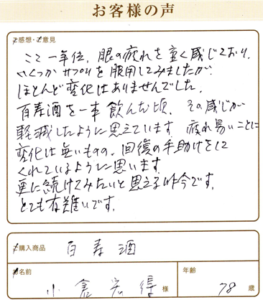 お客様の声
✓感想・✓意見
ここ一年位、眼の疲れを重く感じており、
いくつかサプリを服用してみましたが、
ほとんど変化はありませんでした。
百寿酒を一本飲んだ頃、その感じが
軽減したように思えています。疲れ易いことに
変化は無いものの、回復の手助けをして
くれているように思います。
更に続けてみたいと思える昨今です。
とても有難いです。
✓購入商品 百寿酒
✓名前 小倉 様
年齢 78歳